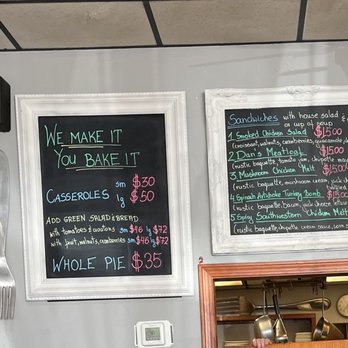 WE MAKE IT
YOU BAKE IT
CASSEROLES sm $30
lg $50
ADD GREEN SALAD & BREAD
with tomatoes & croutons sm $46 lg $72
with fruit, walnuts, cranberries sm $46 lg $72
WHOLE PIE $35
Sandwiches with house salad
or cup of soup
1 Smoked Chicken Salad $15.00
(croissant, walnuts, cranberries,
2 Dan's Meatloaf $15.00
(rustic baguette, tomato jam, chipotle
3 Mushroom Chicken Melt $15.00
(rustic baguette, mushroom cream
4 Spinach Artichoke Turkey Bomb
(rustic baguette, bacon,
5 Spicy Southwestern Chicken Melt
(rustic baguette, chipotle cream sauce,